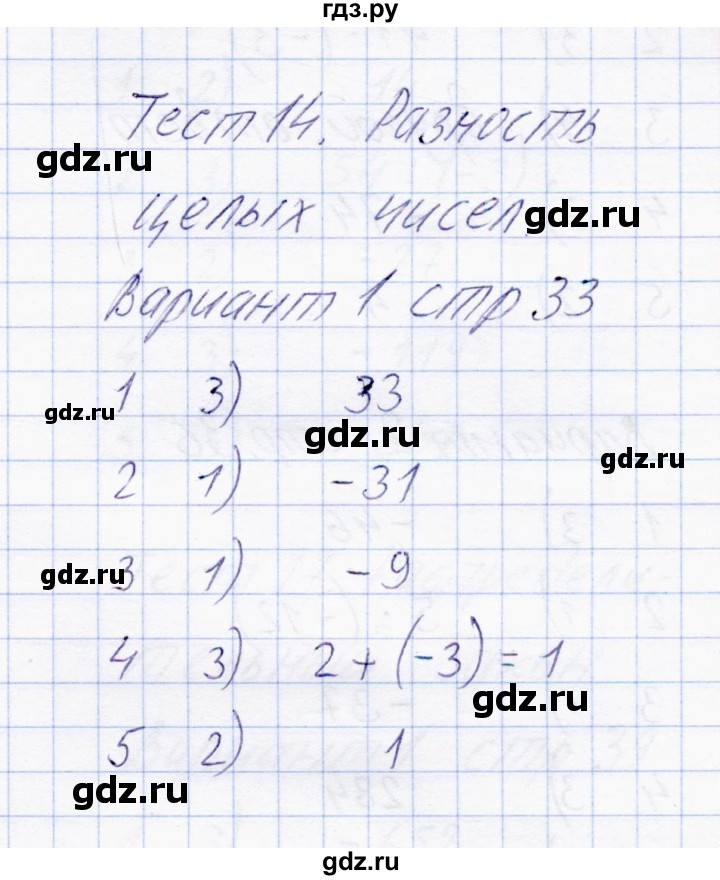 гдз.ру
Тест 14. Разность
gdz.ru
целых чисел.
gdz.ru
Вариант 1 стр 33
1 3) 33
gdz.ru
gdz.ru
gdz.ru
2 1) -31
3 1) -9
gdz.ru
4 3) 2+(-3)=1
gdz.ru
5 2) 1
gdz.ru
gdz.ru